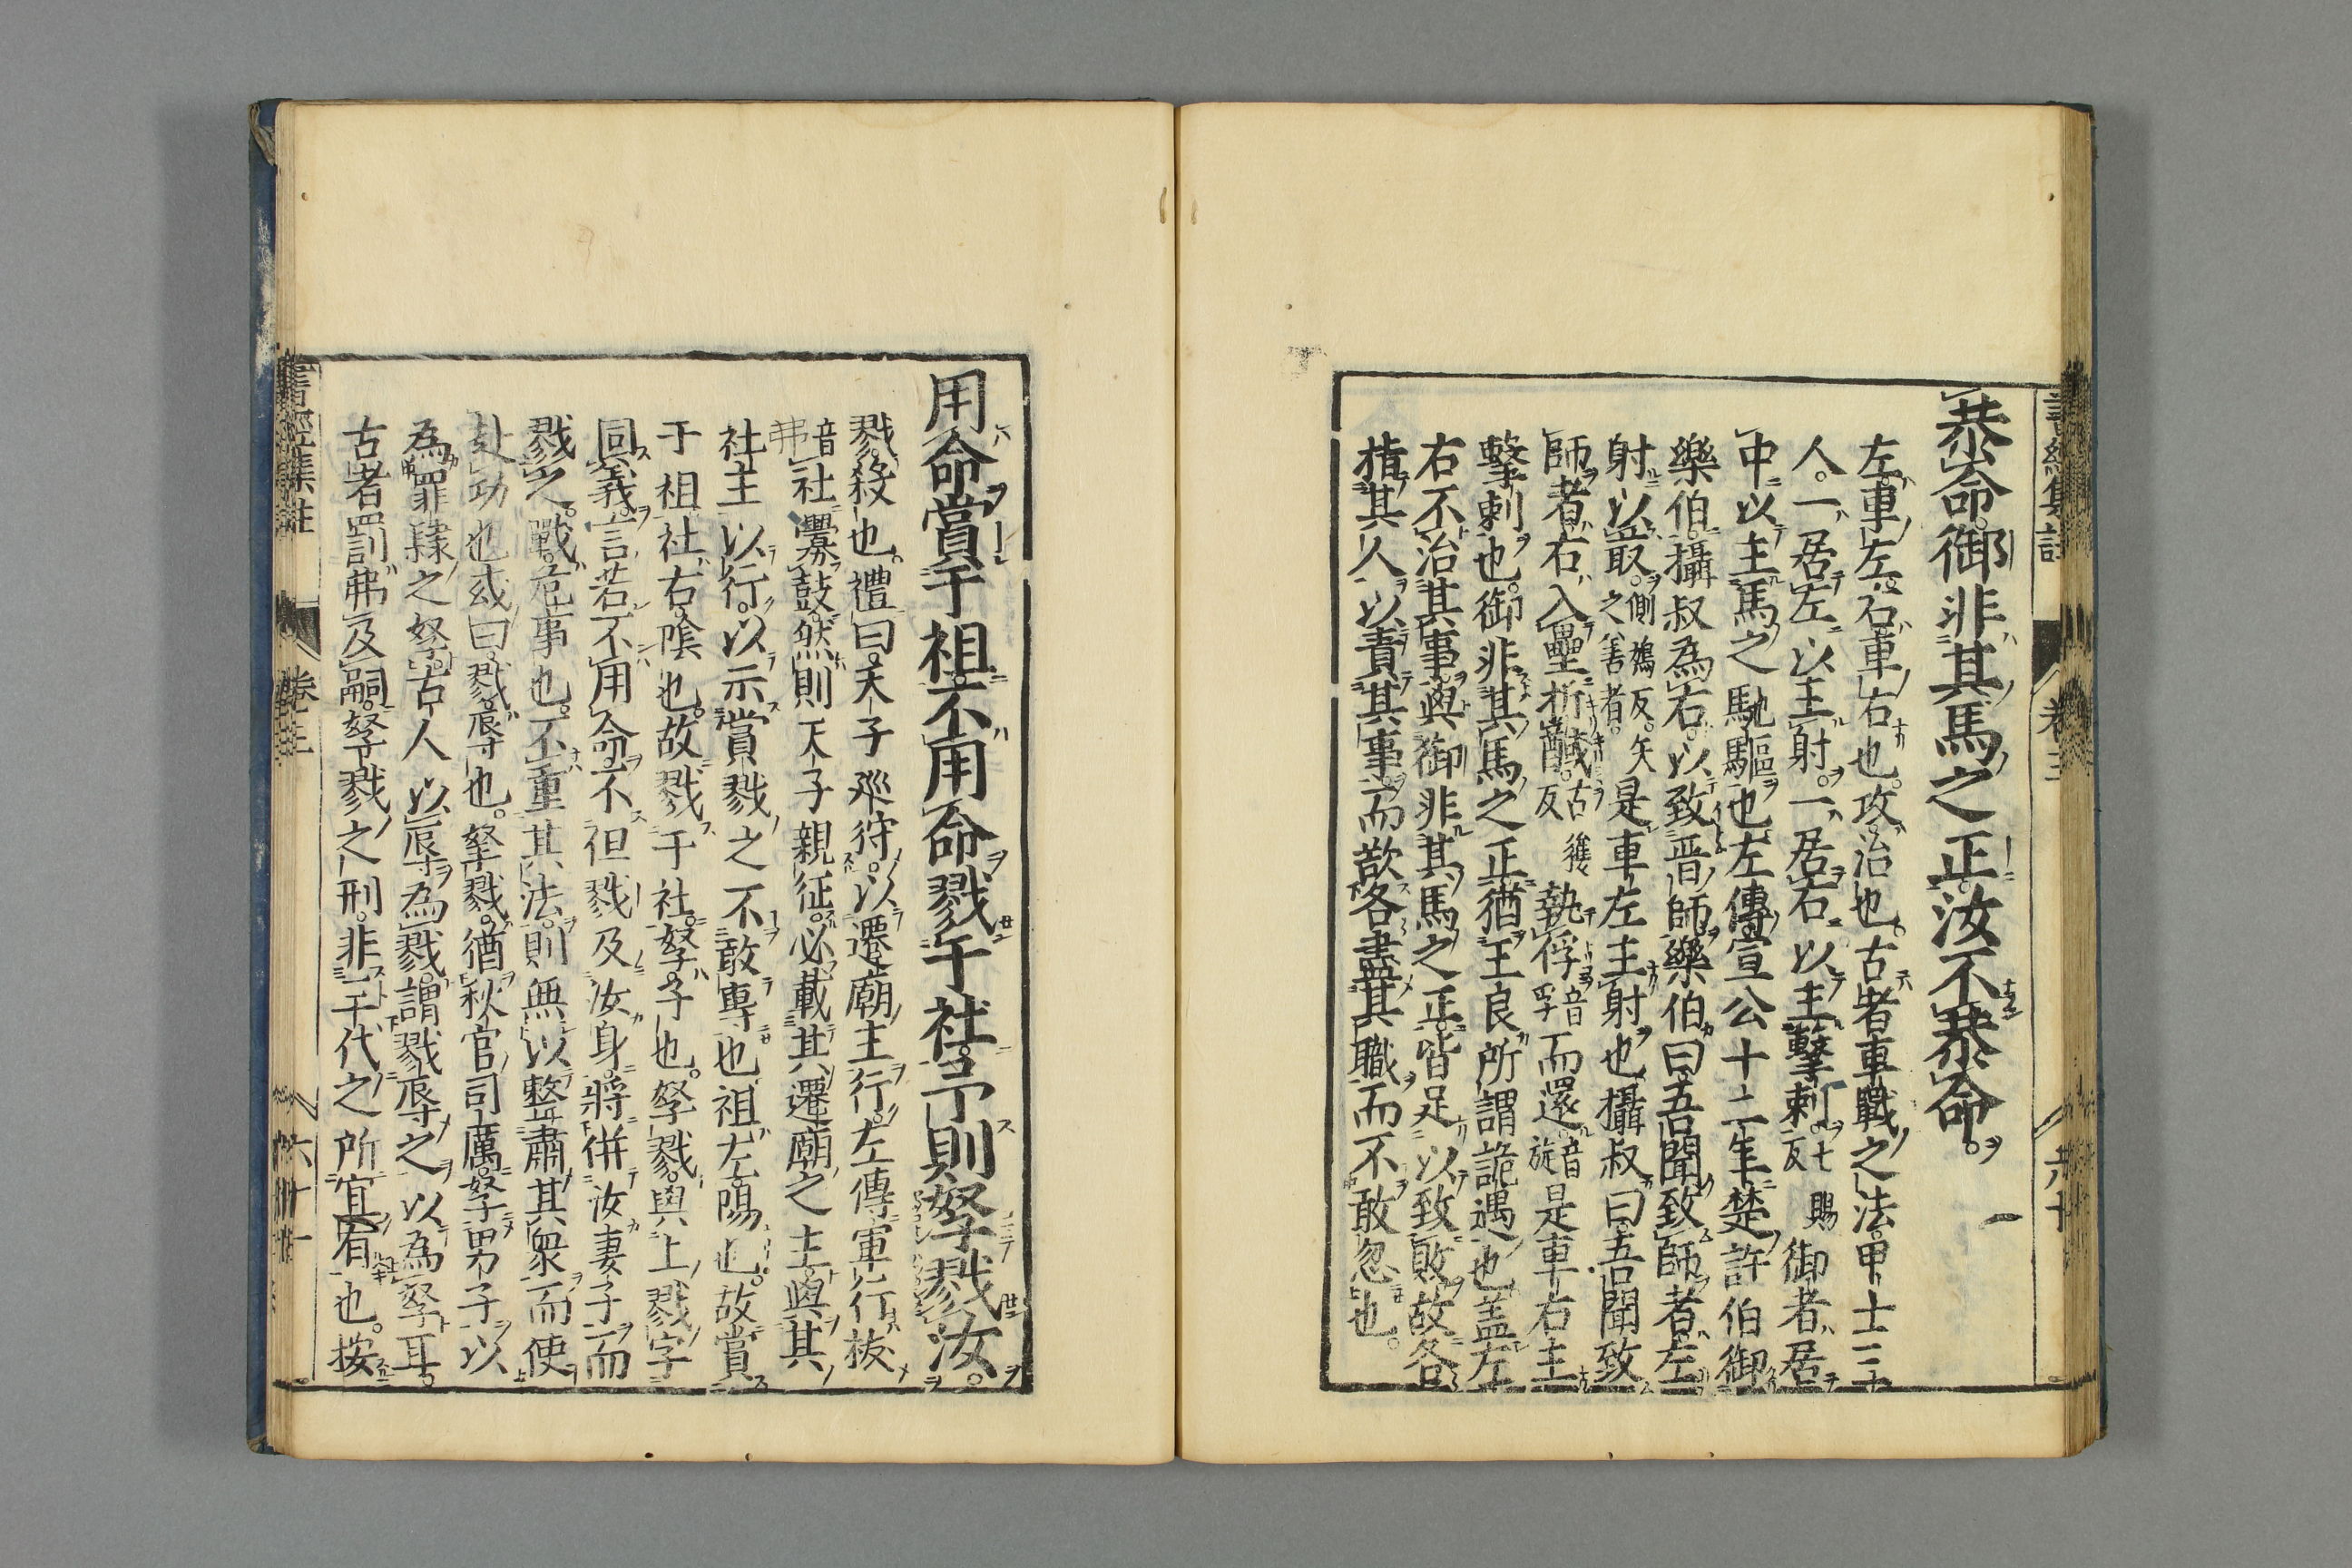 恭命御非其馬之正汝不恭命
左車左右車右也攻治也古者車戰之法甲士三
人一居左以主射一居右以主擊刺七賜反御者居
中以主馬之馳驅也左傳宣公十二年楚許伯御
樂伯攝叔為右以致晉師樂伯曰吾聞致師者左
射以菆側鳩反矢之善者是車左主射也攝叔曰吾聞致
師者右入壘折馘古獲反執俘音孚而還音旋是車右主
擊刺也御非其馬之正猶王良所謂詭遇也蓋左
右不治其事與御非其馬之正皆足以致敗故各
指其人以責其事而欲各盡其職而不敢忽也
書經集註 卷三 六十
用命賞于祖不用命戮于社予則孥戮汝
戮殺也禮曰天子巡狩以遷廟主行左傳軍行祓
音弗社釁鼓然則天子親征必載其遷廟之主與其
社主以行以示賞戮之不敢專也祖左陽也故賞
于祖社右陰也故戮于社孥子也孥戮與上戮字
同義言若不用命不但戮及汝身將併汝妻子而
戮之戰危事也不重其法則無以整肅其衆而使
赴功也或曰戮辱也孥戮猶秋官司厲孥男子以
為罪隸之孥古人以辱為戮謂戮辱之以為孥耳
古者罰弗及嗣孥戮之刑非三代之所宜有也按
書經集註 卷三 六十一